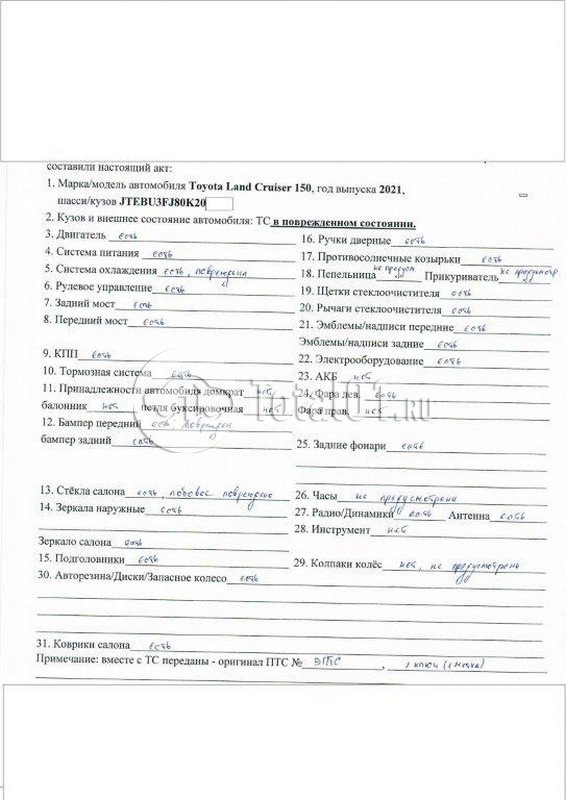 составили настоящий акт:
1. Марка/модель автомобиля Toyota Land Cruiser 150, год выпуска 2021,
шасси/кузов JTEBU3FJ80K20
2. Кузов и внешнее состояние автомобиля: ТС в поврежденном состоянии.
3. Двигатель есть
4. Система питания есть
5. Система охлаждения есть, повреждена
6. Рулевое управление есть
7. Задний мост есть
8. Передний мост есть
9. КПП есть
10. Тормозная система есть
11. Принадлежности автомобиля домкрат нет
балонник нет петля буксировочная нет
12. Бампер передний есть поврежден
бампер задний есть
13. Стёкла салона есть, лобовое повреждено
14. Зеркала наружные есть
Зеркало салона есть
15. Подголовники есть
16. Ручки дверные есть
17. Противосолнечные козырьки есть
18. Пепельница не предусм Прикуриватель не предусмотр
19. Щетки стеклоочистителя есть
20. Рычаги стеклоочистителя есть
21. Эмблемы/надписи передние есть
Эмблемы/надписи задние есть
22. Электрооборудование есть
23. АКБ нет
24. Фара лев. есть
Фара прав. нет
25. Задние фонари есть
26. Часы не предусмотрена
27. Радио/Динамики есть Антенна есть
28. Инструмент нет
29. Колпаки колёс нет, не предусмотрена
30. Авторезина/Диски/Запасное колесо есть
31. Коврики салона есть
Примечание: вместе с ТС переданы - оригинал ПТС № ЭПТС, 1 ключ (1 метка)
Total01.RU